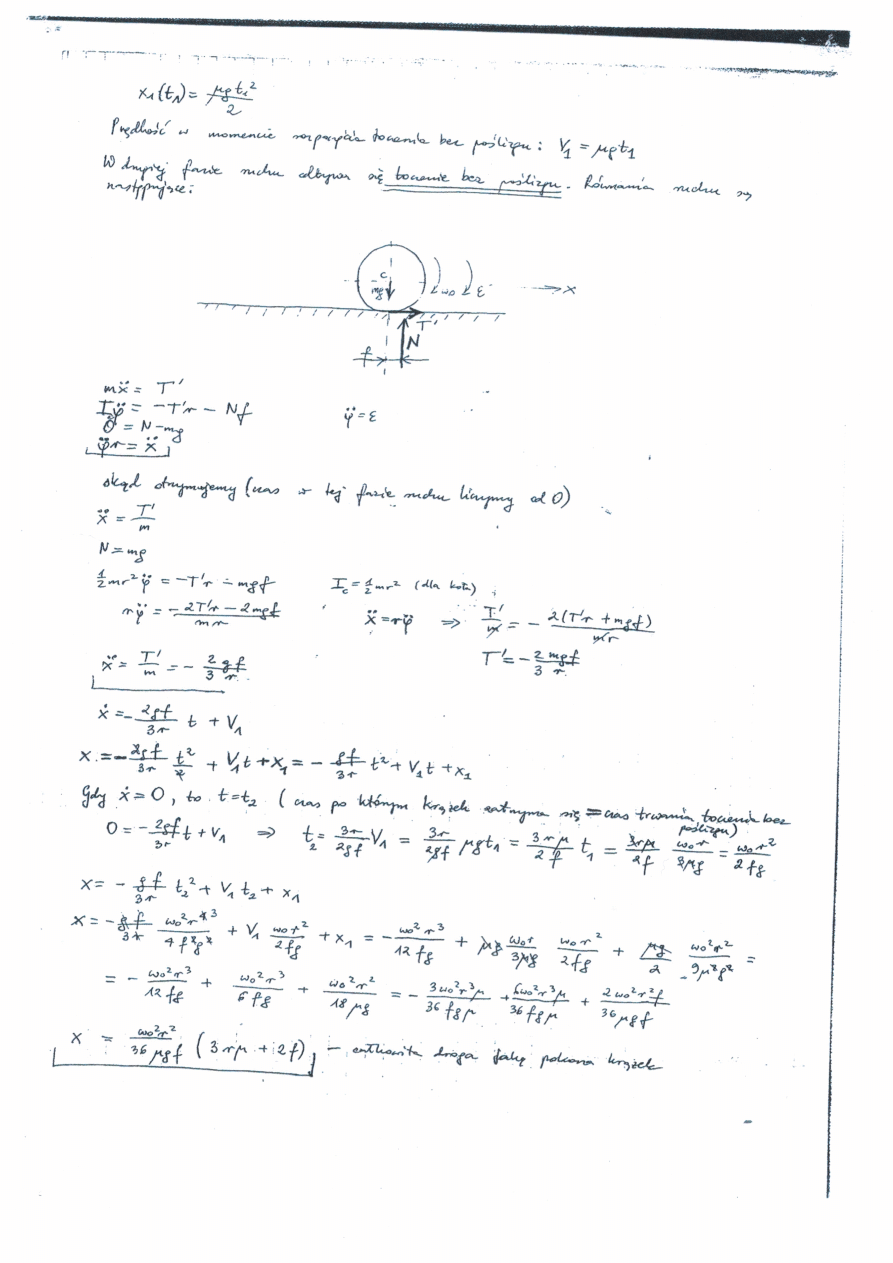 x₁(t₁) = μgt₁²/2
Prędkość w momencie rozpoczęcia toczenia bez poślizgu: V₁ = μgt₁
W drugiej fazie ruchu odbywa się toczenie bez poślizgu. Równania ruchu są
następujące:
C
mg
ω₀ ε
x
T'
N
f
mẍ = T'
Iφ̈ = -T'r - Nf φ̈ = ε
0 = N - mg
φ̈r = ẍ
skąd otrzymujemy (czas w tej fazie ruchu liczymy od 0)
ẍ = T'/m
N = mg
1/2 mr²φ̈ = -T'r - mgf I_c = 1/2 mr² (dla koła)
rφ̈ = (-2T'r - 2mgf)/(mr) ẍ = rφ̈ ⇒ T'/m = - 2(T'r + mgf)/(mr)
T' = - 2/3 mgf/r
ẍ = T'/m = - 2/3 gf/r
ẋ = - 2gf/3r t + V₁
x = - 2gf/3r t²/2 + V₁t + x₁ = - gf/3r t² + V₁t + x₁
Gdy ẋ = 0, to t = t₂ (czas po którym krążek zatrzyma się = czas trwania toczenia bez
poślizgu)
0 = - 2gf/3r t + V₁ ⇒ t₂ = 3r/2gf V₁ = 3r/2gf μgt₁ = 3rμ/2f t₁ = 3rμ/2f ω₀r/3μg = ω₀r²/2fg
x = - gf/3r t₂² + V₁t₂ + x₁
x = - gf/3r ω₀²r⁴³/4f²g² + V₁ ω₀r²/2fg + x₁ = - ω₀²r³/12fg + μg ω₀r/3μg ω₀r²/2fg + μg/2 ω₀²r²/9μ²g² =
= - ω₀²r³/12fg + ω₀²r³/6fg + ω₀²r²/18μg = - 3ω₀²r³μ/36fgμ + 6ω₀²r³μ/36fgμ + 2ω₀²r²f/36μgf
x = ω₀²r²/36μgf (3rμ + 2f) - całkowita droga jaką pokona krążek